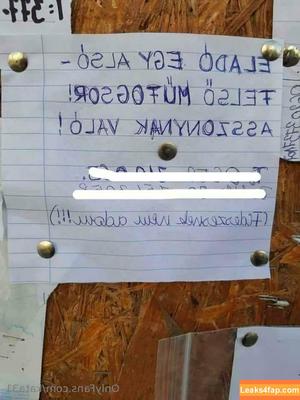 ELADÓ EGY ALSÓ -
FELSŐ MŰFOGSOR!
ASSZONYNAK VALÓ!
(Fideszesnek nem adom!!!)
Leaks4fap.com